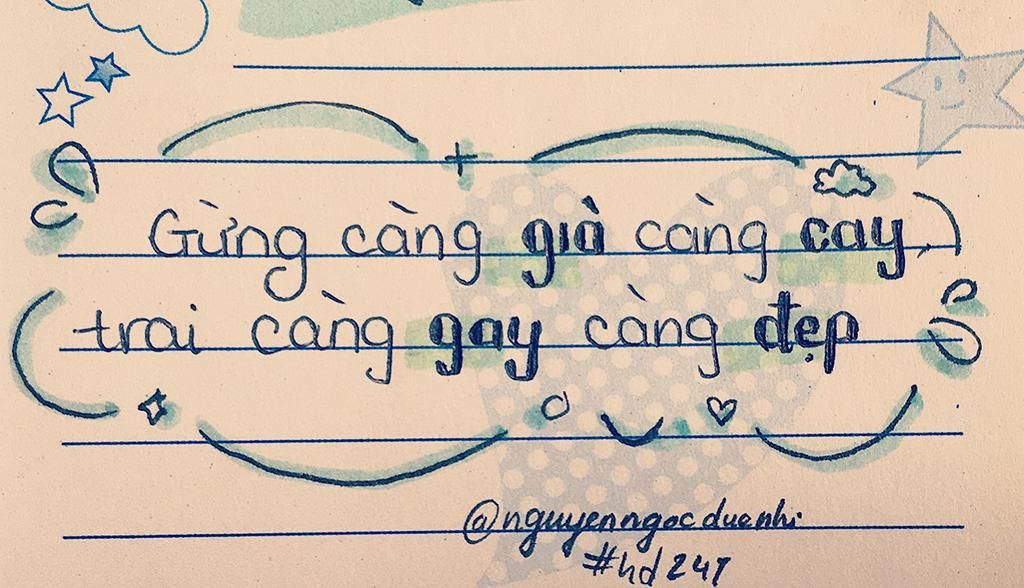 Gừng càng già càng cay,
trai càng gay càng đẹp
@nguyenngocduenhi
#hd247